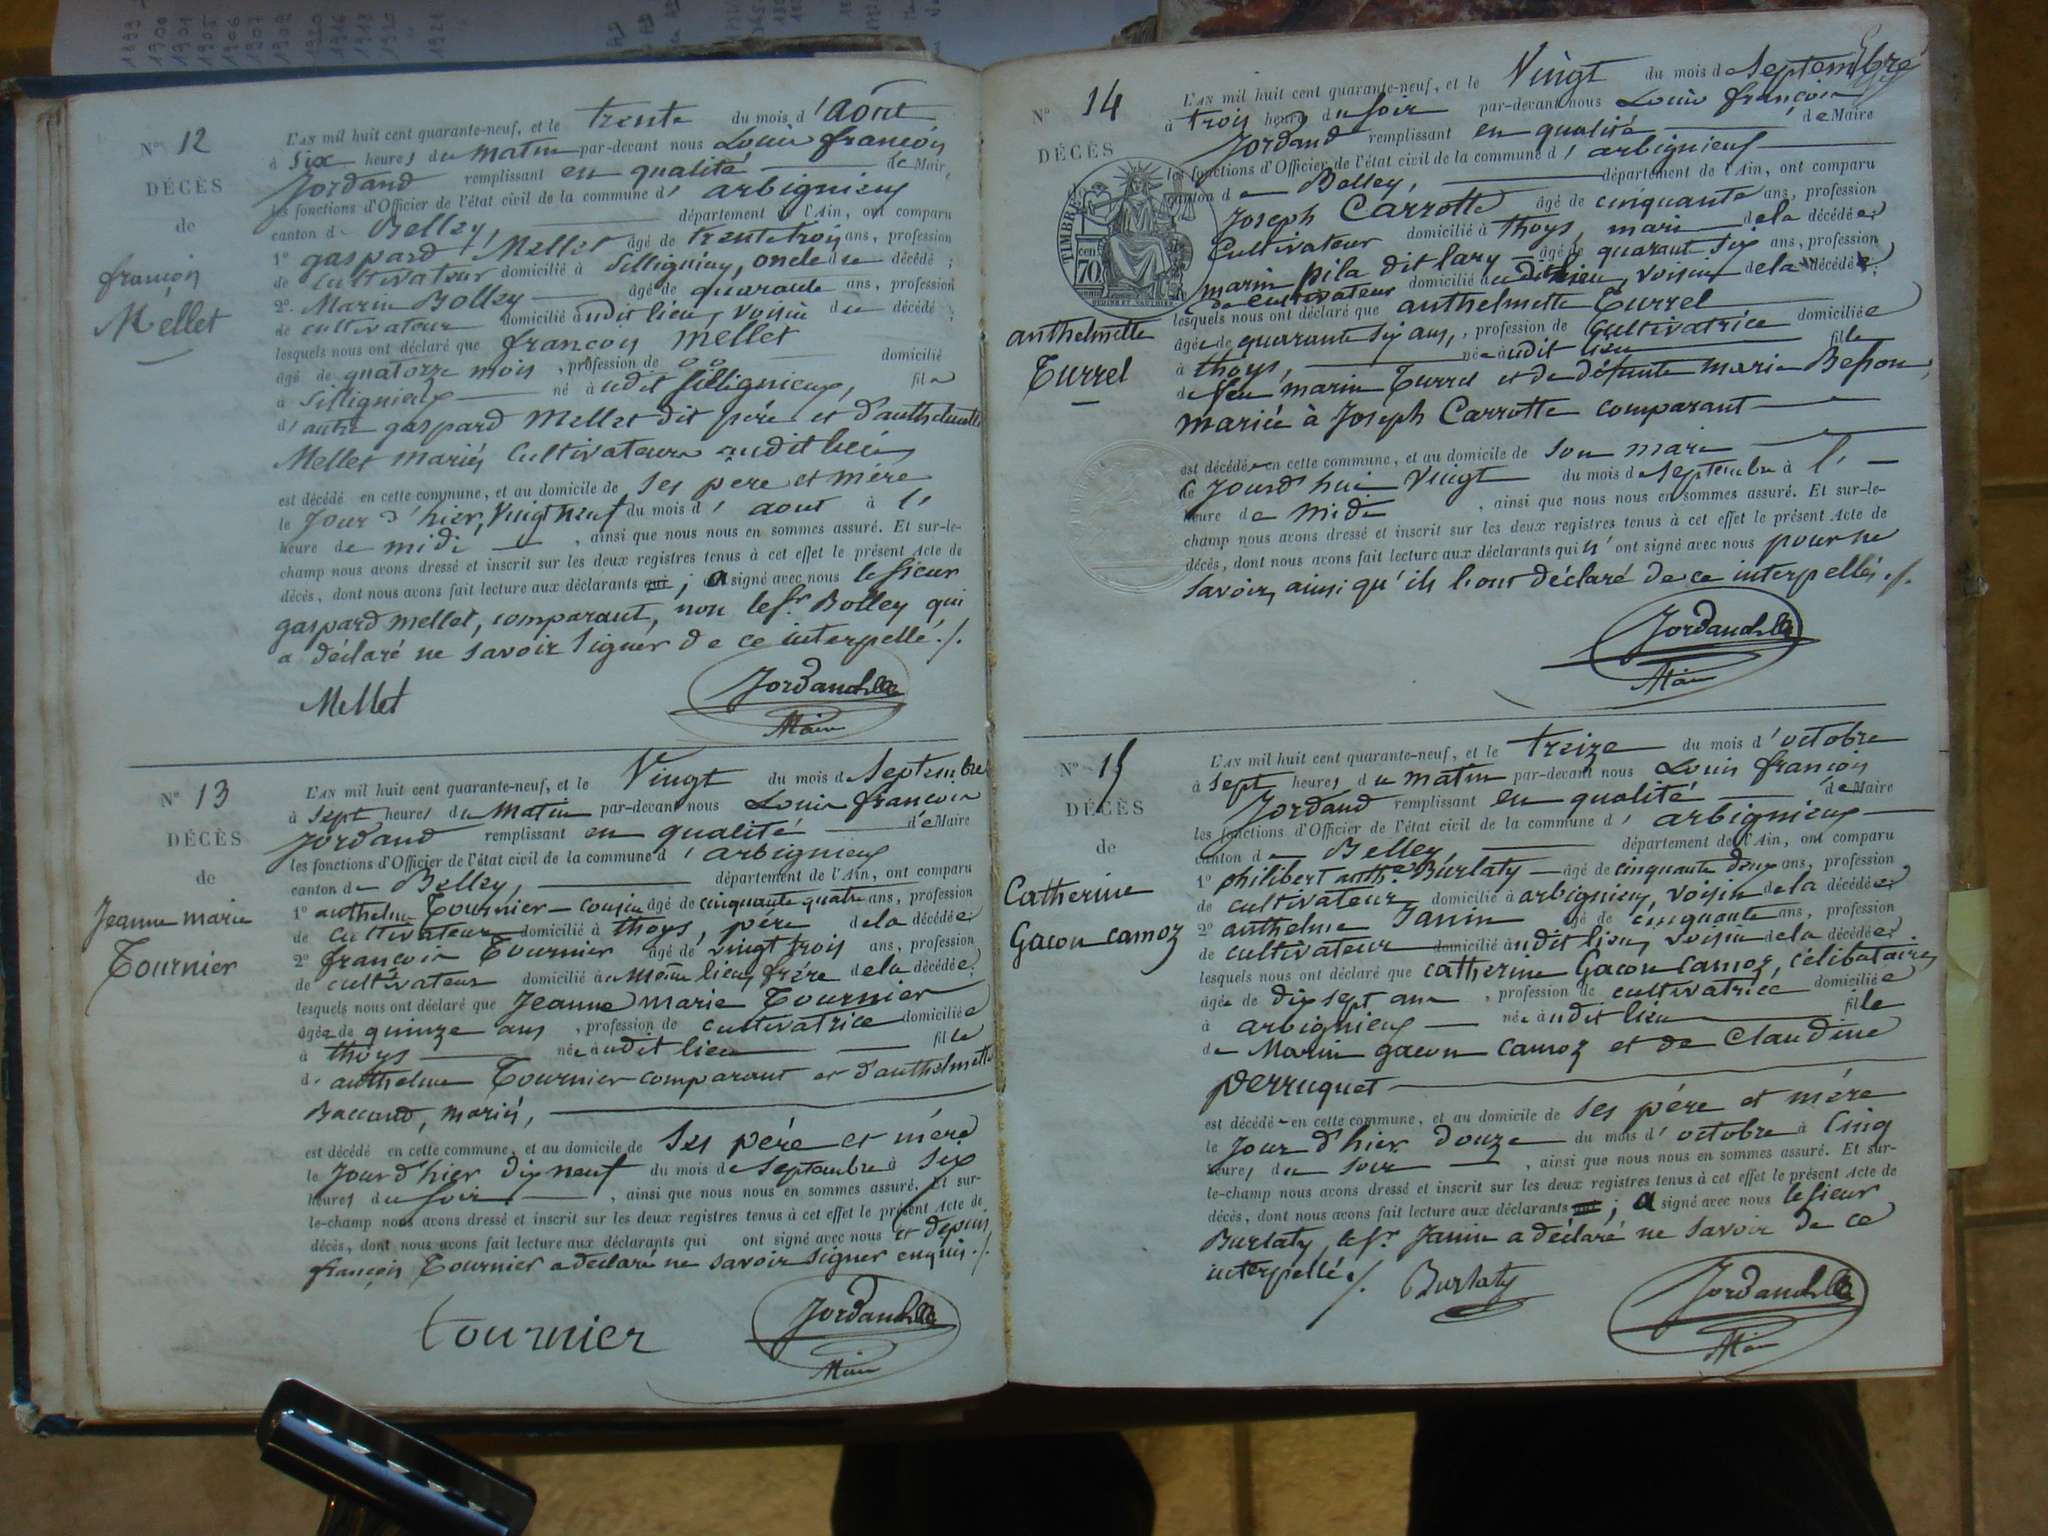 1899
1900
1901
1905
1906
1907
1908
1916
1918
1921
N° 12
DÉCÈS
de
françois
Mellet
L'AN mil huit cent quarante-neuf, et le trente du mois d'Août
à Six heures du matin par-devant nous Louis françois
Jordand remplissant en qualité de Maire
les fonctions d'Officier de l'état civil de la commune d'arbignieux
canton de Belley, département de l'Ain, ont comparu
1° gaspard Mellet âgé de trente trois ans, profession
de cultivateur domicilié à Sillignieu, oncle du décédé;
2° Marin Bolley âgé de quarante ans, profession
de cultivateur domicilié audit lieu, voisin du décédé;
lesquels nous ont déclaré que françois mellet
âgé de quatorze mois, profession de
à Sillignieux né audit Sillignieux, fils
d'autre gaspard Mellet dit père et d'anthelmette
Mellet mariés Cultivateurs audit lieu
est décédé en cette commune, et au domicile de ses père et mère
le Jour d'hier, Vingt neuf du mois d'aout à l'
heure de midi, ainsi que nous nous en sommes assuré. Et sur-le-
champ nous avons dressé et inscrit sur les deux registres tenus à cet effet le présent Acte de
décès, dont nous avons fait lecture aux déclarants qui; a signé avec nous le sieur
gaspard mellet, comparant, non le sr Bolley qui
a déclaré ne savoir signer de ce interpellé./.
Mellet Jordand
Maire
N° 13
DÉCÈS
de
Jeanne marie
Tournier
L'AN mil huit cent quarante-neuf, et le Vingt du mois de Septembre
à Sept heures du Matin par-devant nous Louis françois
Jordand remplissant en qualité de Maire
les fonctions d'Officier de l'état civil de la commune d'arbignieux
canton de Belley, département de l'Ain, ont comparu
1° anthelme Tournier-cousin âgé de cinquante quatre ans, profession
de Cultivateur domicilié à thoys, père de la décédée;
2° françois Tournier âgé de vingt trois ans, profession
de cultivateur domicilié au même lieu, frère de la décédée;
lesquels nous ont déclaré que Jeanne marie Tournier
âgée de quinze ans, profession de cultivatrice domiciliée
à thoys née audit lieu fille
d'anthelme Tournier comparant et d'anthelmette
Baccand, mariés,
est décédé en cette commune, et au domicile de Ses père et mère
le Jour d'hier dix neuf du mois de Septembre à Six
heures du soir, ainsi que nous nous en sommes assuré. Et sur-
le-champ nous avons dressé et inscrit sur les deux registres tenus à cet effet le présent Acte de
décès, dont nous avons fait lecture aux déclarants qui ont signé avec nous et depuis
françois Tournier a déclaré ne savoir signer enquis./.
tournier Jordand
Maire
N° 14
DÉCÈS
TIMBRE
70
anthelmette
Turrel
L'AN mil huit cent quarante-neuf, et le Vingt du mois de Septembre
à trois heures du soir par-devant nous Louis françois
Jordand remplissant en qualité de Maire
les fonctions d'Officier de l'état civil de la commune d'arbignieux
canton de Belley, département de l'Ain, ont comparu
Joseph Carrotte âgé de cinquante ans, profession
Cultivateur domicilié à thoys, mari de la décédée;
marin pila dit lary âgé de quarant six ans, profession
de cultivateur domicilié audit lieu, voisin de la décédée;
lesquels nous ont déclaré que anthelmette Turrel
âgée de quarante six ans, profession de Cultivatrice domiciliée
à thoys, née audit lieu fille
de feu marin Turrel et de défunte marie Besson,
mariée à Joseph Carrotte comparant
est décédée en cette commune, et au domicile de son mari
ce Jourd'hui Vingt du mois de Septembre à l'
heure de midi, ainsi que nous nous en sommes assuré. Et sur-le-
champ nous avons dressé et inscrit sur les deux registres tenus à cet effet le présent Acte de
décès, dont nous avons fait lecture aux déclarants qui n'ont signé avec nous pour ne
savoir, ainsi qu'ils l'ont déclaré de ce interpellés./.
Jordand
Maire
N° 15
DÉCÈS
de
Catherine
Gacon camoz
L'AN mil huit cent quarante-neuf, et le treize du mois d'octobre
à sept heures du matin par-devant nous Louis françois
Jordand remplissant en qualité de Maire
les fonctions d'Officier de l'état civil de la commune d'arbignieux
canton de Belley, département de l'Ain, ont comparu
1° philibert anthe Burlaty âgé de cinquante deux ans, profession
de cultivateur domicilié à arbignieu, voisin de la décédée;
2° anthelme Janin âgé de cinquante ans, profession
de cultivateur domicilié audit lieu, voisin de la décédée;
lesquels nous ont déclaré que catherine Gacon camoz, célibataire,
âgée de dix sept ans, profession de cultivatrice domiciliée
à arbignieux née audit lieu fille
de Marin gacon camoz et de Claudine
perruquet
est décédée en cette commune, et au domicile de ses père et mère
le Jour d'hier douze du mois d'octobre à Cinq
heures du soir, ainsi que nous nous en sommes assuré. Et sur-
le-champ nous avons dressé et inscrit sur les deux registres tenus à cet effet le présent Acte de
décès, dont nous avons fait lecture aux déclarants; a signé avec nous le sieur
Burlaty, le sr Janin a déclaré ne savoir de ce
interpellé./. Burlaty Jordand
Maire